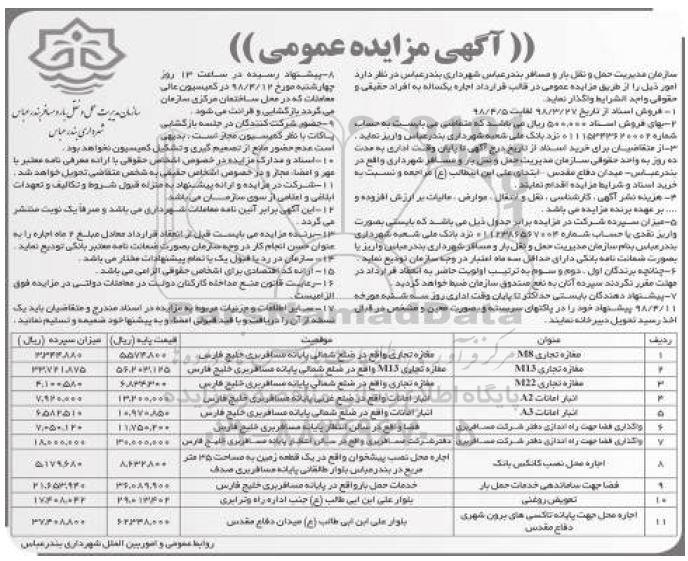 (( آگهی مزایده عمومی ))
سازمان مدیریت حمل و نقل بار و مسافر بندرعباس
شهرداری بندرعباس
سازمان مدیریت حمل و نقل بار و مسافر بندرعباس شهرداری بندرعباس در نظر دارد
امور ذیل را از طریق مزایده عمومی در قالب قرارداد اجاره یکساله به افراد حقیقی و
حقوقی واجد الشرایط واگذار نماید.
۱- فروش اسناد از تاریخ ۹۸/۳/۲۷ لغایت ۹۸/۴/۵
۲-بهای فروش اسناد ۵۰۰,۰۰۰ ریال می باشد که متقاضی می بایست به حساب
شماره ۰۱۱۱۵۳۴۳۶۲۰۰۲ نزد بانک ملی شعبه شهرداری بندرعباس واریز نماید.
۳-از متقاضیان برای خرید اسناد از تاریخ درج آگهی تا پایان وقت اداری به مدت
ده روز به واحد حقوقی سازمان مدیریت حمل و نقل بار و مسافر شهرداری واقع در
بندرعباس- میدان دفاع مقدس - ابتدای علی ابن ابیطالب (ع) مراجعه و نسبت به
خرید اسناد و شرایط مزایده اقدام نمایند.
۴- هزینه نشر آگهی، کارشناسی، نقل و انتقال، عوارض، مالیات بر ارزش افزوده و
.... بر عهده برنده مزایده می باشد.
۵-میزان سپرده شرکت در مزایده برابر جدول ذیل می باشد که بایستی بصورت
واریز نقدی یا حساب شماره ۰۱۱۲۳۸۶۵۶۷۰۰۴ نزد بانک ملی شعبه شهرداری
بندرعباس بنام سازمان مدیریت حمل و نقل بار و مسافر شهرداری بندرعباس واریز یا
بصورت ضمانت نامه بانکی دارای حداقل سه ماه اعتبار در وجه سازمان تودیع نماید.
۶-چنانچه برندگان اول، دوم و سوم به ترتیب اولویت حاضر به انعقاد قرارداد در
مهلت مقرر نگردند سپرده آنان به نفع صندوق سازمان ضبط خواهد گردید
۷-پیشنهاد دهندگان بایستی حداکثر تا پایان وقت اداری روز سه شنبه مورخه
۹۸/۴/۱۱ پیشنهاد خود را در پاکتهای سربسته و بصورت معین و مشخص در قبال
اخذ رسید تحویل دبیرخانه نمایند.
۸-پیشنهاد رسیده در ساعت ۱۳ روز
چهارشنبه مورخ ۹۸/۴/۱۲ در کمیسیون عالی
معاملات که در محل ساختمان مرکزی سازمان
می گردد بازگشایی و قرائت می شود.
۹-حضور شرکت کنندگان در جلسه بازگشایی
پاکات با نظر کمیسیون مجاز است، بدیهی
است عدم حضور مانع از تصمیم گیری و تشکیل کمیسیون نخواهد بود.
۱۰-اسناد و مدارک مزایده در خصوص اشخاص حقوقی با ارائه معرفی نامه معتبر با
مهر و امضا، مجاز و در خصوص اشخاص حقیقی به شخص متقاضی تحویل خواهد شد.
۱۱-شرکت در مزایده و ارائه پیشنهاد به منزله قبول شروط و تکالیف و تعهدات
ابلاغی و اعلامی از سوی سازمان می باشد.
۱۲-این آگهی برابر آئین نامه معاملات شهرداری می باشد و صرفا یک نوبت منتشر
می گردد.
۱۳-برنده مزایده می بایست قبل از انعقاد قرارداد معادل مبلغ ۲ ماه اجاره را به
عنوان حسن انجام کار در وجه سازمان بصورت ضمانت نامه معتبر بانکی تودیع نماید.
۱۴-سازمان در رد یا قبول یک یا تمام پیشنهادات مختار می باشد.
۱۵-ارائه کد اقتصادی برای اشخاص حقوقی الزامی می باشد.
۱۶-رعایت قانون منع مداخله کارکنان دولت در معاملات دولتی در مزایده فوق
الزامیست.
۱۷-سایر اطلاعات و جزئیات مربوط به مزایده در اسناد مندرج و متقاضیان باید یک
نسخه از آن را دریافت و با قید قبولی امضا، و به پیشنهاد خود ضمیمه و تسلیم نمایند.
ردیف عنوان موقعیت قیمت پایه (ریال) میزان سپرده (ریال)
۱ مغازه تجاری M8 مغازه تجاری واقع در ضلع شمالی پایانه مسافربری خلیج فارس ۵,۵۷۴,۸۰۰ ۳,۳۴۴,۸۸۰
۲ مغازه تجاری M13 مغازه تجاری M13 واقع در ضلع شمالی پایانه مسافربری خلیج فارس ۵۶,۲۰۳,۱۲۵ ۳۳,۷۲۱,۸۷۵
۳ مغازه تجاری M22 مغازه تجاری واقع در ضلع شمالی پایانه مسافربری خلیج فارس ۶,۸۳۴,۳۰۰ ۴,۱۰۰,۵۸۰
۴ انبار امانات A2 انبار امانات واقع در ضلع غربی پایانه مسافربری خلیج فارس ۱۳,۲۰۰,۰۰۰ ۷,۹۲۰,۰۰۰
۵ انبار امانات A3 انبار امانات واقع در ضلع شمالی پایانه مسافربری خلیج فارس ۱۰,۹۷۰,۸۵۰ ۶,۵۸۲,۵۱۰
۶ واگذاری فضا جهت راه اندازی دفتر شرکت مسافربری فضا واقع در سالن انتظار پایانه مسافربری خلیج فارس ۱۱,۷۵۰,۲۰۰ ۷,۰۵۰,۱۲۰
۷ واگذاری فضا جهت راه اندازی دفتر شرکت مسافربری دفتر شرکت مسافربری واقع در سالن انتظار پایانه مسافربری خلیج فارس ۳۰,۰۰۰,۰۰۰ ۱۸,۰۰۰,۰۰۰
۸ اجاره محل نصب کانکس بانک اجاره محل نصب پیشخوان واقع در یک قطعه زمین به مساحت ۳۵ متر مربع در بندرعباس بلوار طالقانی پایانه مسافربری صدف ۸,۶۳۲,۸۰۰ ۵,۱۷۹,۶۸۰
۹ فضا جهت ساماندهی خدمات حمل بار خدمات حمل بار واقع در پایانه مسافربری خلیج فارس ۳۶,۰۸۹,۹۰۰ ۲۱,۶۵۳,۹۴۰
۱۰ تعویض روغنی بلوار علی ابن ابی طالب (ع) جنب اداره راه وترابری ۲۹,۰۱۳,۴۰۲ ۱۷,۴۰۸,۰۴۲
۱۱ اجاره محل جهت پایانه تاکسی های برون شهری دفاع مقدس بلوار علی ابن ابی طالب (ع) میدان دفاع مقدس ۶۲,۳۴۸,۰۰۰ ۳۷,۴۰۸,۸۰۰
روابط عمومی و امور بین الملل شهرداری بندرعباس